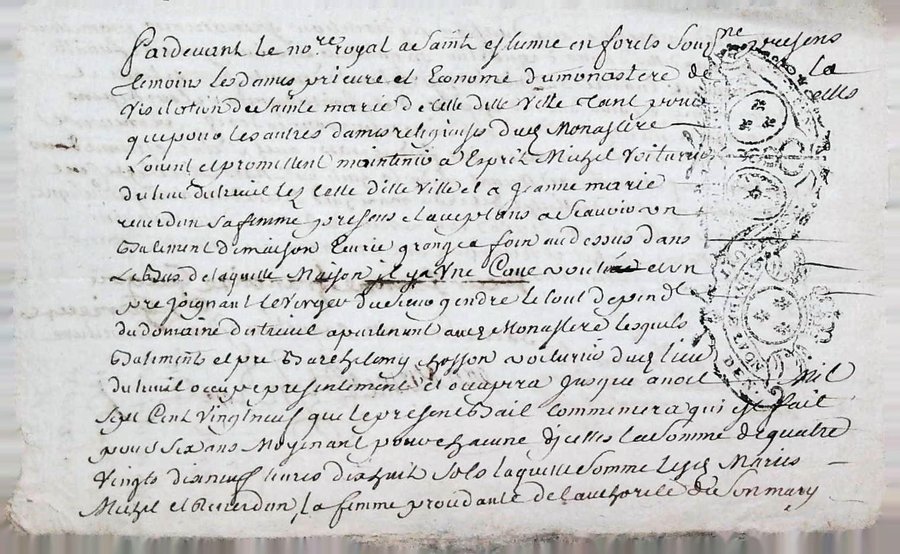 Pardevant le no.re royal de Saint estienne en forets Soup.ne presens
temoins les dames prieure et Econome du monastere de la
visitation de Sainte marie de cette ditte ville tant pour elles
que pour les autres dames religieuses dud Monastere
Louent et promettent maintenir a Esprit Michel voiturier
du lieu du treuil lez cette ditte ville et a Jeanne marie
reverdun sa femme presens et acceptans a Scavoir un
Batiment de maison Ecurie grange a foin au dessus dans
Le bas de laquelle Maison il y a Une Cave voutée et un
pre joignant le verger du Sieur gendre le tout dependt
du domaine du treuil apartenant aud Monastere lesquels
Batiments et pre Barthelemy Chosson voiturier dud lieu
du treuil occupe presentement et occupera Jusque a noel Mil
Sept Cent Vingtneuf que le present Bail Commencera qui est fait
pour Six ans Moyenant pour chacune d'jcelles la Somme de quatre
Vingts dixneuf livres dixhuit Sols laquelle Somme lesd Mariés
Michel et Reverdun, la femme procedante de l'authorité de Son mary